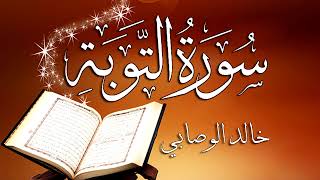 سُورَةُ التَّوبَةِ
خالد الوصابي